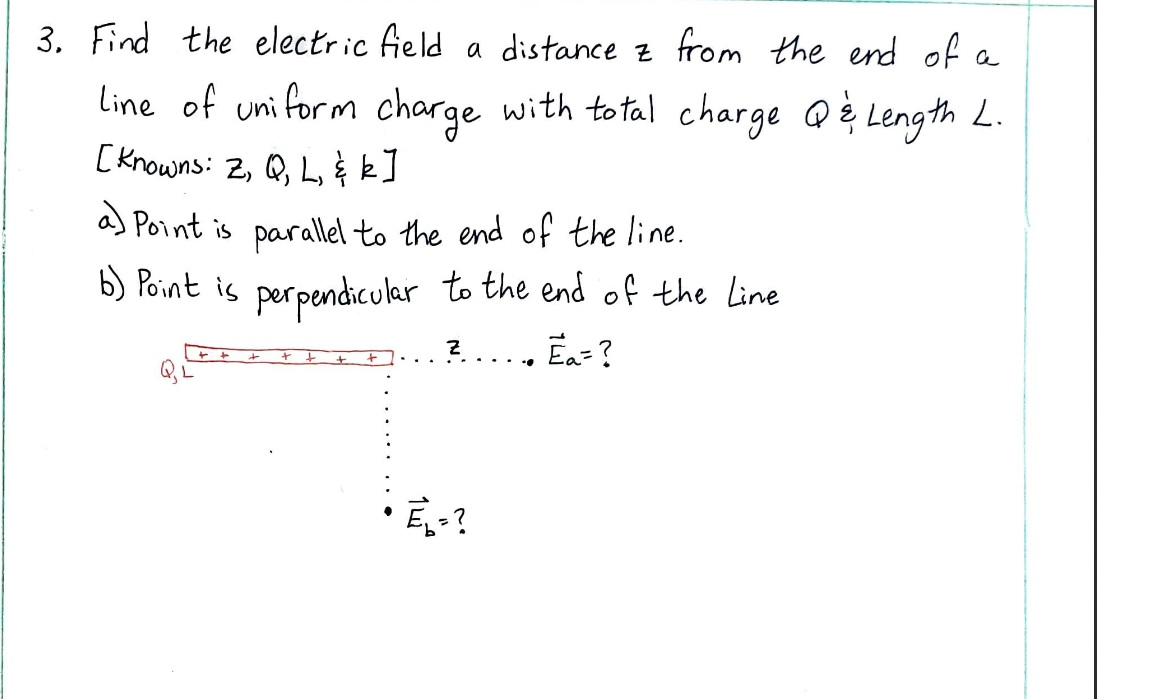 3. Find the electric field a distance z from the end of a
line of uniform charge with total charge Q & Length L.
[Knowns: z, Q, L, & k]
a) Point is parallel to the end of the line.
b) Point is perpendicular to the end of the Line
+ + + + + + + ... z ..... E⃗a = ?
Q, L
E⃗b = ?